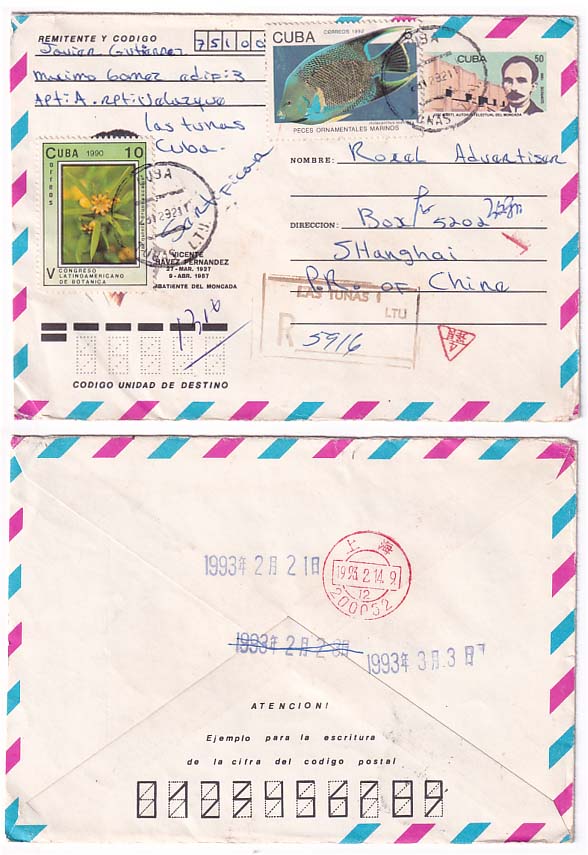 REMITENTE Y CODIGO 75100
Javier Gutierrez
Maximo Gomez edif: 3
Apt: A. rpt: Velazque
Las tunas
Cuba.
CUBA CORREOS 1992
PECES ORNAMENTALES MARINOS
CUBA 50
JOSE MARTI, AUTOR INTELECTUAL DEL MONCADA
CUBA 1990 10
correos
V CONGRESO
LATINOAMERICANO
DE BOTANICA
CUBA
TUNAS LTU
Certificar
VICENTE
CHAVEZ FERNANDEZ
27-MAR. 1927
9-ABR. 1957
COMBATIENTE DEL MONCADA
NOMBRE: Roxal Advertiser
DIRECCION: Box 5202
SHanghai
P.R. of China
LAS TUNAS 1
LTU
R 5916
1316
CODIGO UNIDAD DE DESTINO
上海
1993.2.14.9
12
200052
1993年2月21日
1993年2月28日
1993年3月3日
ATENCION!
Ejemplo para la escritura
de la cifra del codigo postal
0123456789